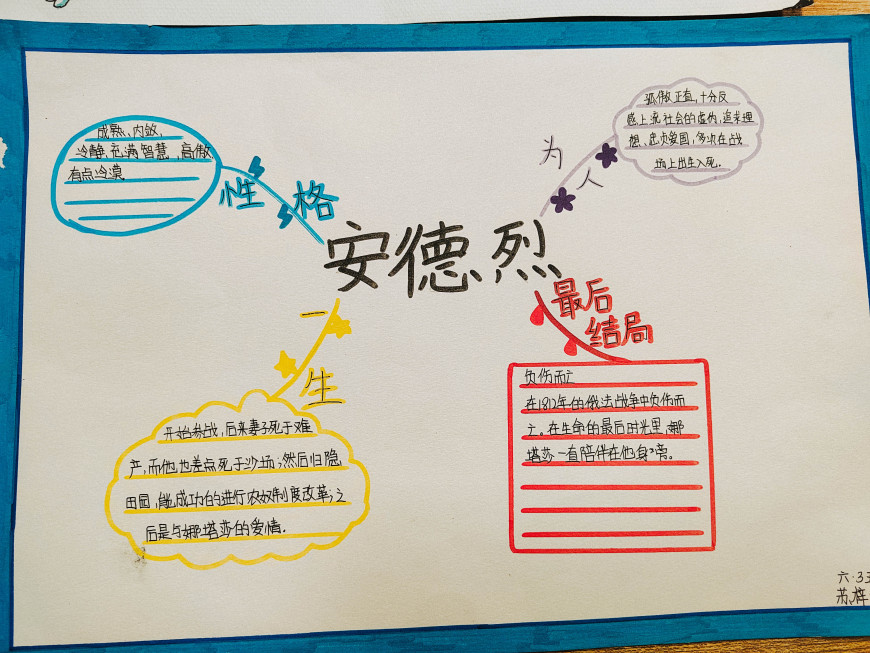 成熟、内敛,
冷静,充满智慧,高傲
有点冷漠
性格
为人
孤傲正直,十分反
感上流社会的虚伪,追求理
想,忠贞爱国,多次在战
场上出生入死。
安德烈
一生
开始参战,后来妻子死于难
产,而他也差点死于沙场;然后归隐
田园,能成功的进行农奴制度改革;之
后是与娜塔莎的爱情.
最后
结局
负伤而亡
在1812年的俄法战争中负伤而
亡。在生命的最后时光里,娜
塔莎一直陪伴在他身旁。
六·33
苏梓